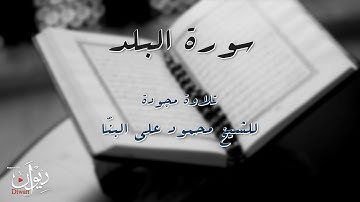 سورة البلد
تلاوة مجودة
للشيخ محمود على البنّا
ديوان
Diwan